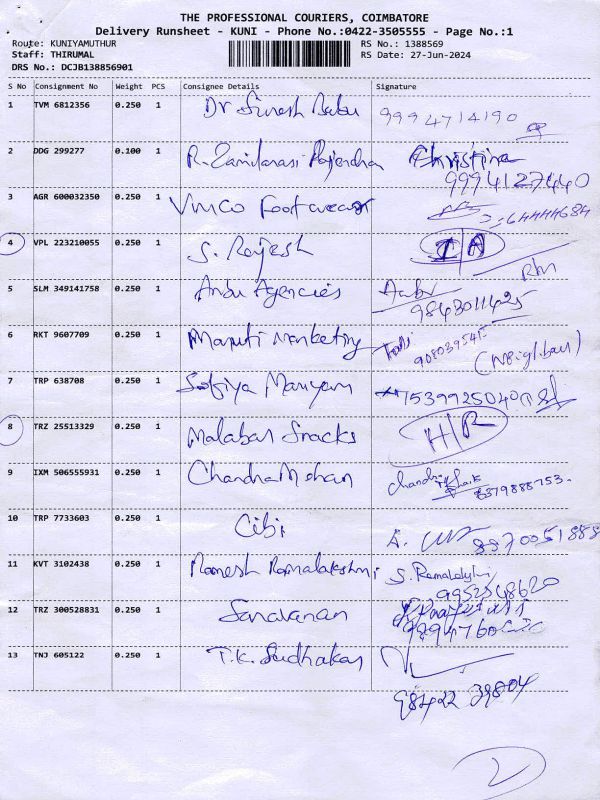 THE PROFESSIONAL COURIERS, COIMBATORE
Delivery Runsheet - KUNI - Phone No.:0422-3505555 - Page No.:1
Route: KUNIYAMUTHUR RS No.: 1388569
Staff: THIRUMAL RS Date: 27-Jun-2024
DRS No.: DCJB138856901
S No Consignment No Weight PCS Consignee Details Signature
1 TVM 6812356 0.250 1 Dr Suresh Babu 9994714190
2 DDG 299277 0.100 1 R. Rajendra Christina
9994127440
3 AGR 600032350 0.250 1 VMCO Footwear
4 VPL 223210055 0.250 1 S. Rajesh
5 SLM 349141758 0.250 1 Anbu Agencies
9843011425
6 RKT 9607709 0.250 1 Maruti Marketing
7 TRP 638708 0.250 1 Sofiya Mariyam
8 TRZ 25513329 0.250 1 Malabar Snacks H/R
9 IXM 506555931 0.250 1 Chandra Mohan
10 TRP 7733603 0.250 1 Cibi
11 KVT 3102438 0.250 1 Ramesh Ramalakshmi S.
9952548620
12 TRZ 300528831 0.250 1 Saravanan
13 TNJ 605122 0.250 1 T.K. Sudhakar
98422 39804